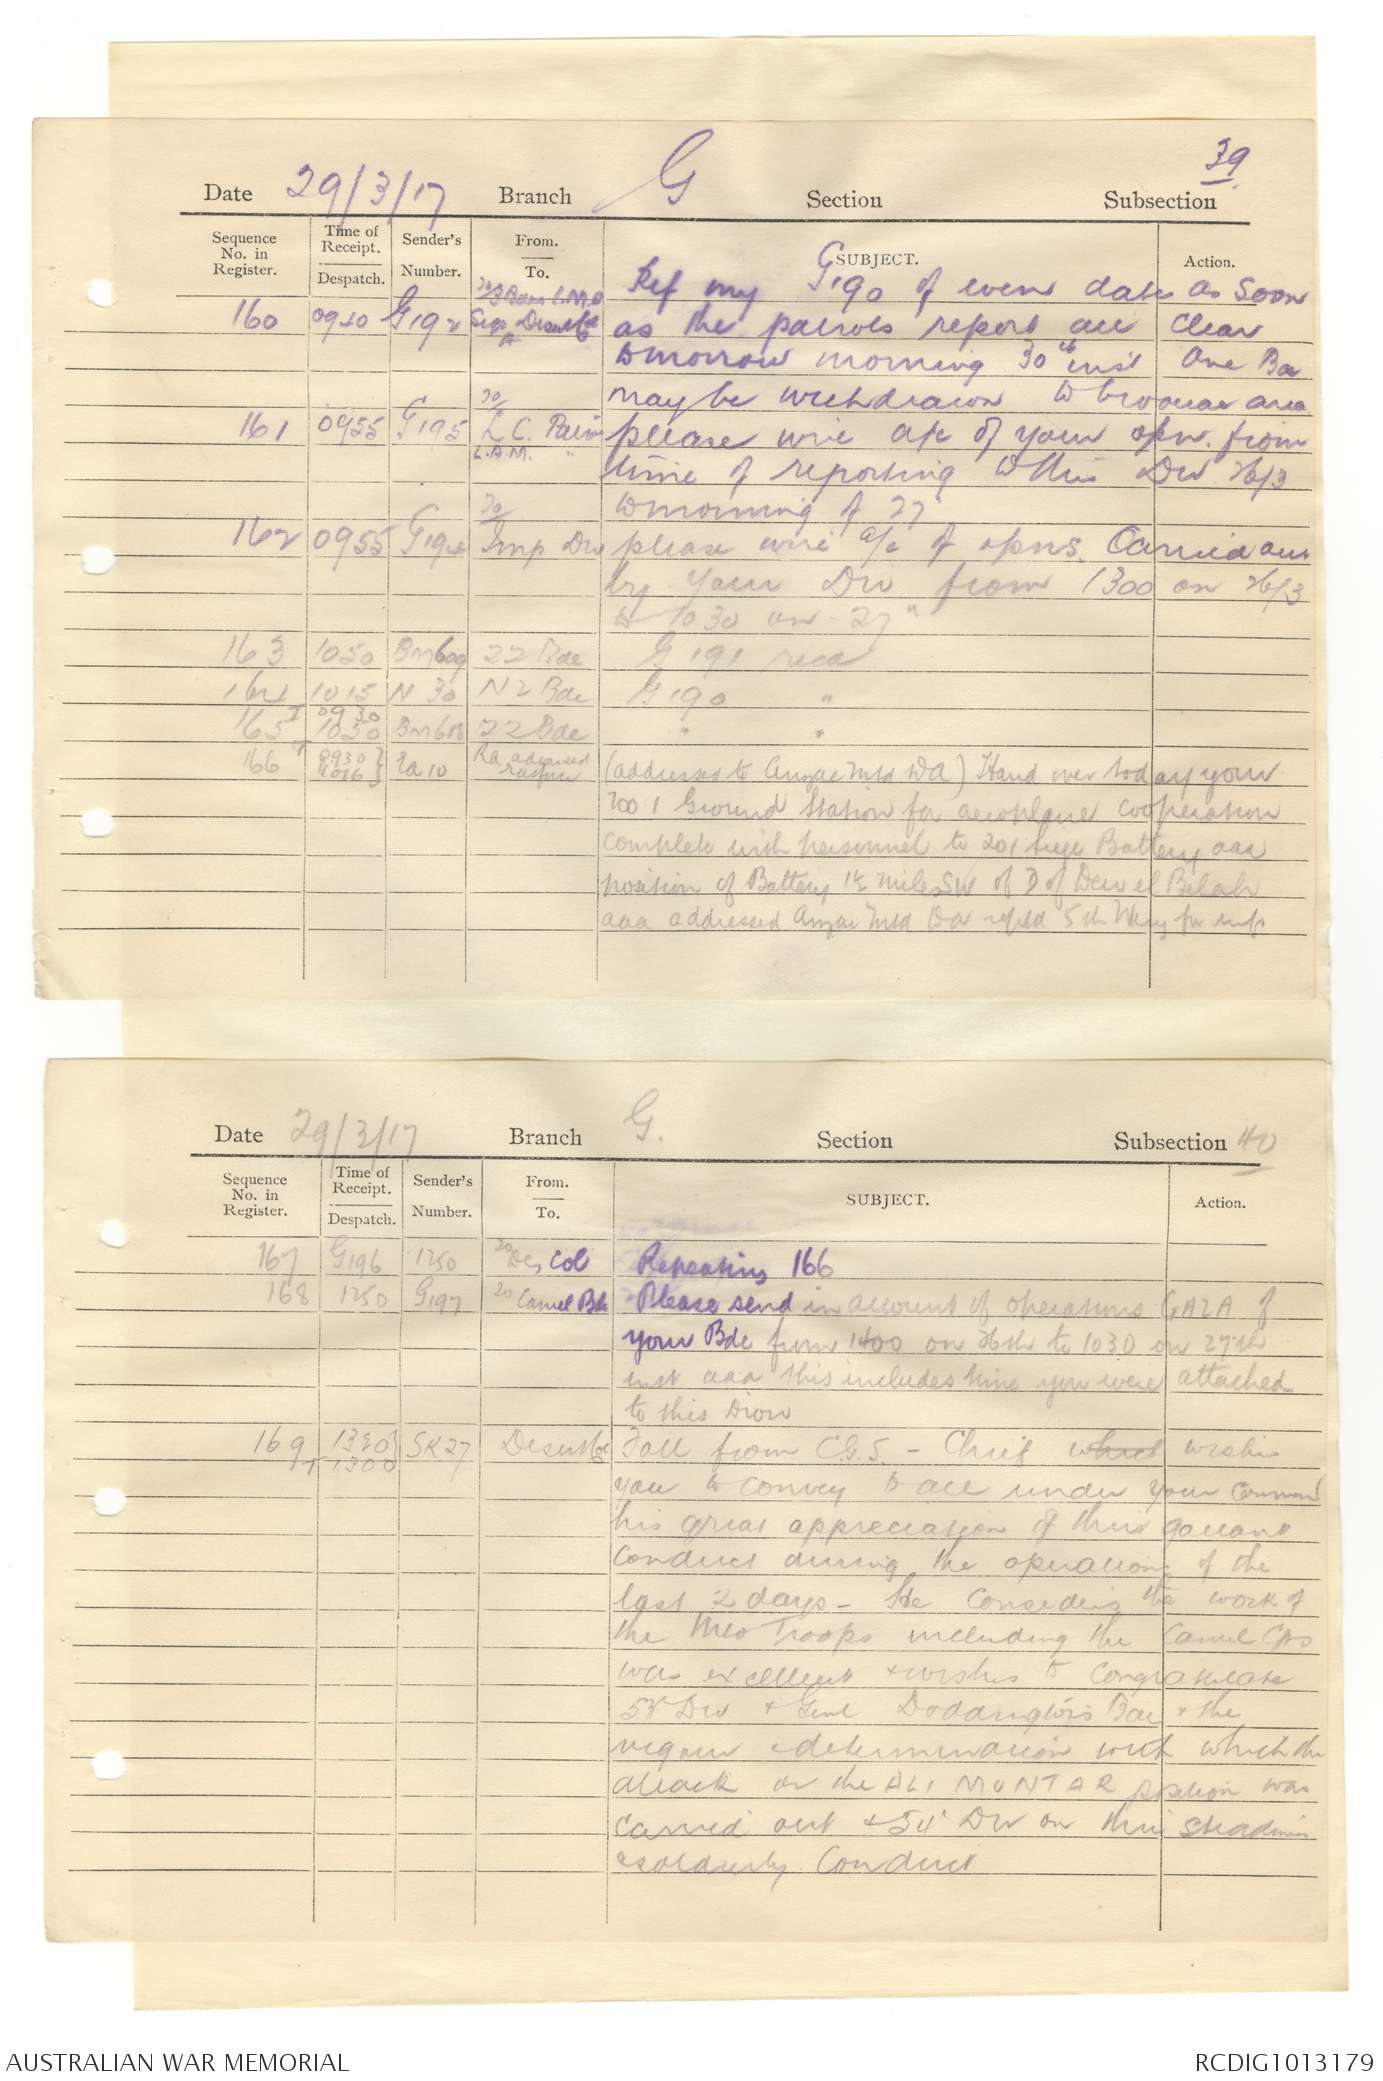 39
Date 29/3/17 Branch G Section Subsection
Sequence No. in Register. Time of Receipt. Despatch. Sender's Number. From. To. SUBJECT. Action.
160 0940 G192 Ref my G190 of even date as soon
as the patrols report all clear
tomorrow morning 30th inst one Bde
may be withdrawn to bivouac area
161 0955 G195 To L.C. L.A.M. " please wire a/c of your opns. from
time of reporting to this Div 26/3
to morning of 27"
162 0955 G194 To Imp Div please wire a/c of opns. Carried out
by your Div from 1300 on 26/3
to 1030 on 27"
163 1050 Bm609 22 Bde G 191 recd
164 1015 N 30 NZ Bde G190 "
165 0930 1030 Bm608 22 Bde " "
166 0930 1016 Ra10 Ra advanced (addressed to Anzac Mtd DA) Hand over today your
Ground Station for aeroplane cooperation
complete with personnel to 201 Siege Battery aaa
position of Battery 1½ miles SW of D of Deir el Belah
aaa addressed Anzac Mtd Da reptd 5th Wing for inf
Date 29/3/17 Branch G. Section Subsection 40
Sequence No. in Register. Time of Receipt. Despatch. Sender's Number. From. To. SUBJECT. Action.
167 G196 1250 Des Col Repeating 166
168 1250 G197 To Camel Bde Please send in account of operations GAZA of
your Bde from 1400 on 26th to 1030 on 27th
inst aaa this includes time you were attached
to this Divn
169 1320 1300 SK27 Desert Col Foll from C.G.S. - Chief which wishes
you to convey to all under your command
his great appreciation of their gallant
conduct during the operations of the
last 2 days - He considers the work of
the Mtd Troops including the Camel Cps
was excellent & wishes to congratulate
53 Div & Genl Doddington's Bde & the
vigour & determination with which the
attack on the ALI MUNTAR position was
carried out & 54 Div on their steadiness
& soldierly conduct
AUSTRALIAN WAR MEMORIAL RCDIG1013179